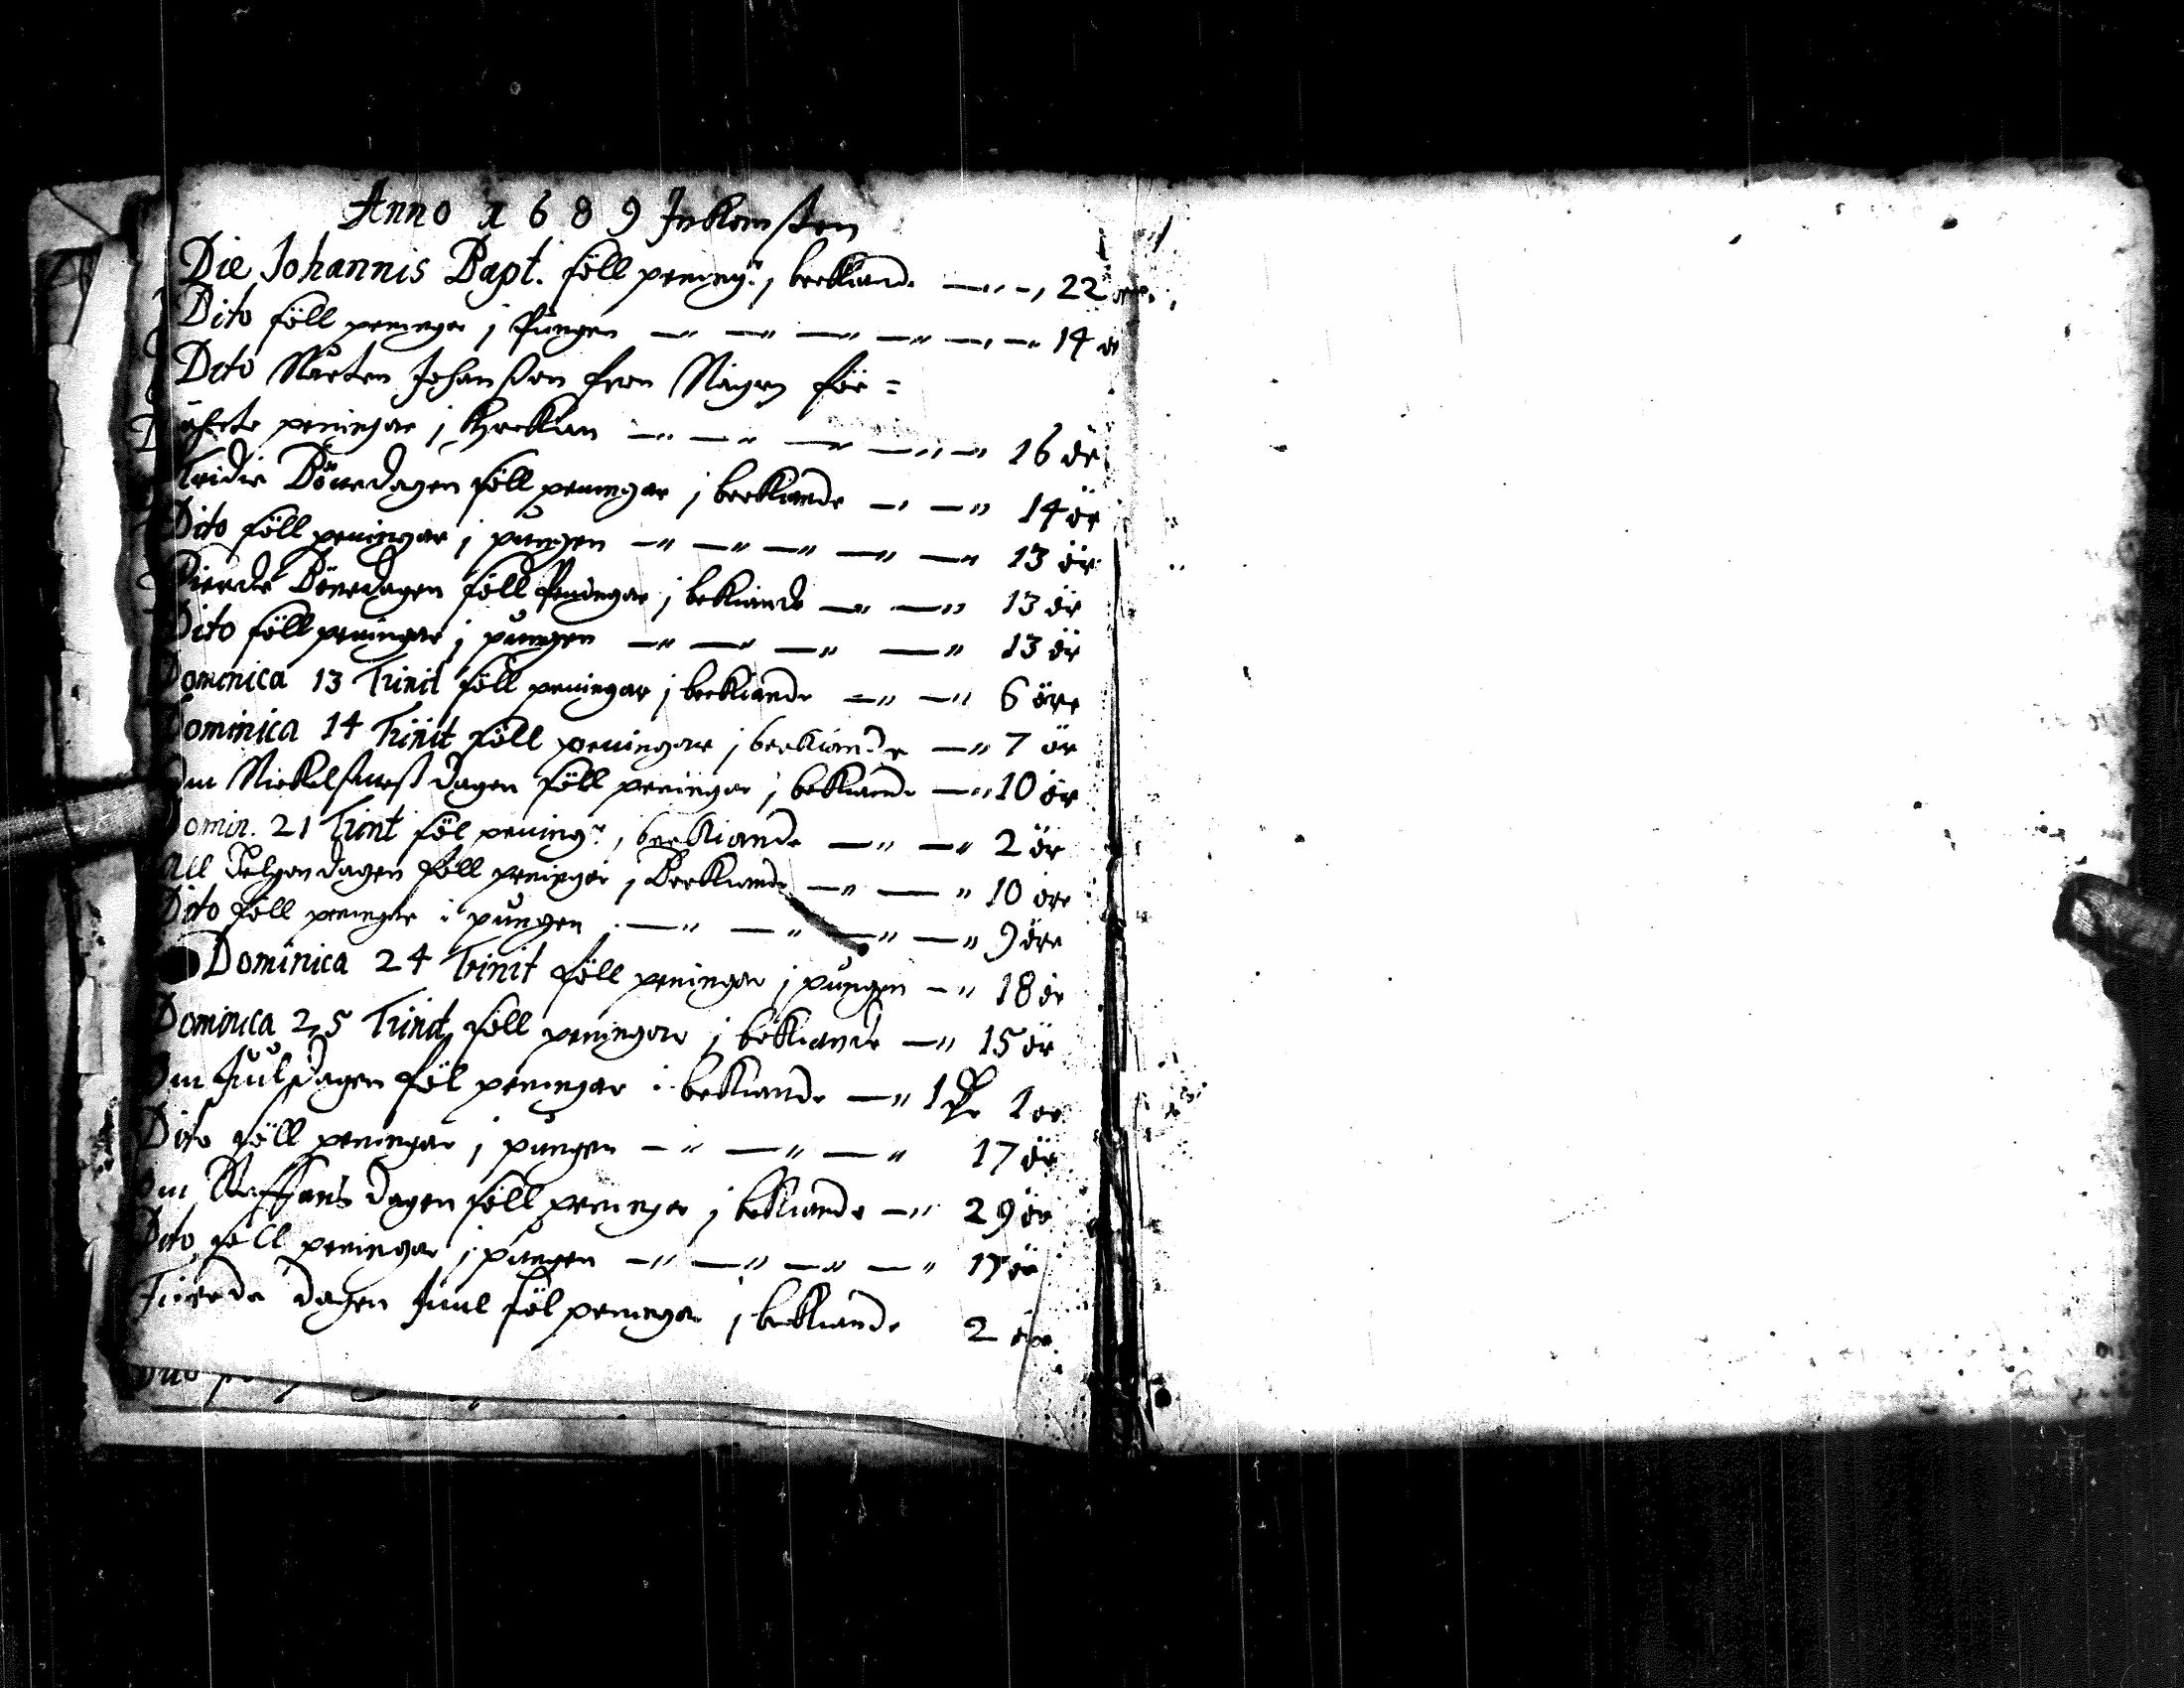 Anno 1689 Inkomsten
Die Johannis Bapt. föll pening: j beekiande — 22 öre
Dito föll peningar j Pungen — — — — — — 14 ör
Dito Mårten Johanßon från för=
ährte peningar j Kyrkian — — — — — 16 ör
Tridie Bönedagen föll peningar j beekiande — — 14 ör
Dito föll peningar j pungen — — — — — 13 ör
Fierde Bönedagen föll Peningar j bekiande — — 13 ör
Dito föll peningar j pungen — — — — 13 ör
Dominica 13 Trinit föll peningar j beekiande — — 6 öre
Dominica 14 Trinit föll peningar j beekiande — 7 ör
Om Mickelsmeß dagen föll peningar j bekiande — 10 ör
Domin. 21 Trint föl pening: j beekiande — — 2 ör
All Helgon dagen föll peningar j Beekiande — — 10 öre
Dito föll peningar i pungen — — — — 9 öre
Dominica 24 Trinit föll peningar j pungen — 18 ör
Dominica 25 Trinit föll peningar j bekiande — 15 ör
Om Juul dagen föl peningar i bekiande — 1 dr 1 ör
Dito föll peningar j pungen — — — 17 ör
Om Staffans dagen föll peningar j bekiande — 29 ör
Dito föll peningar j pungen — — — — 17 ör
Fierde dagen Juul föl peningar j bekiande 2 ör